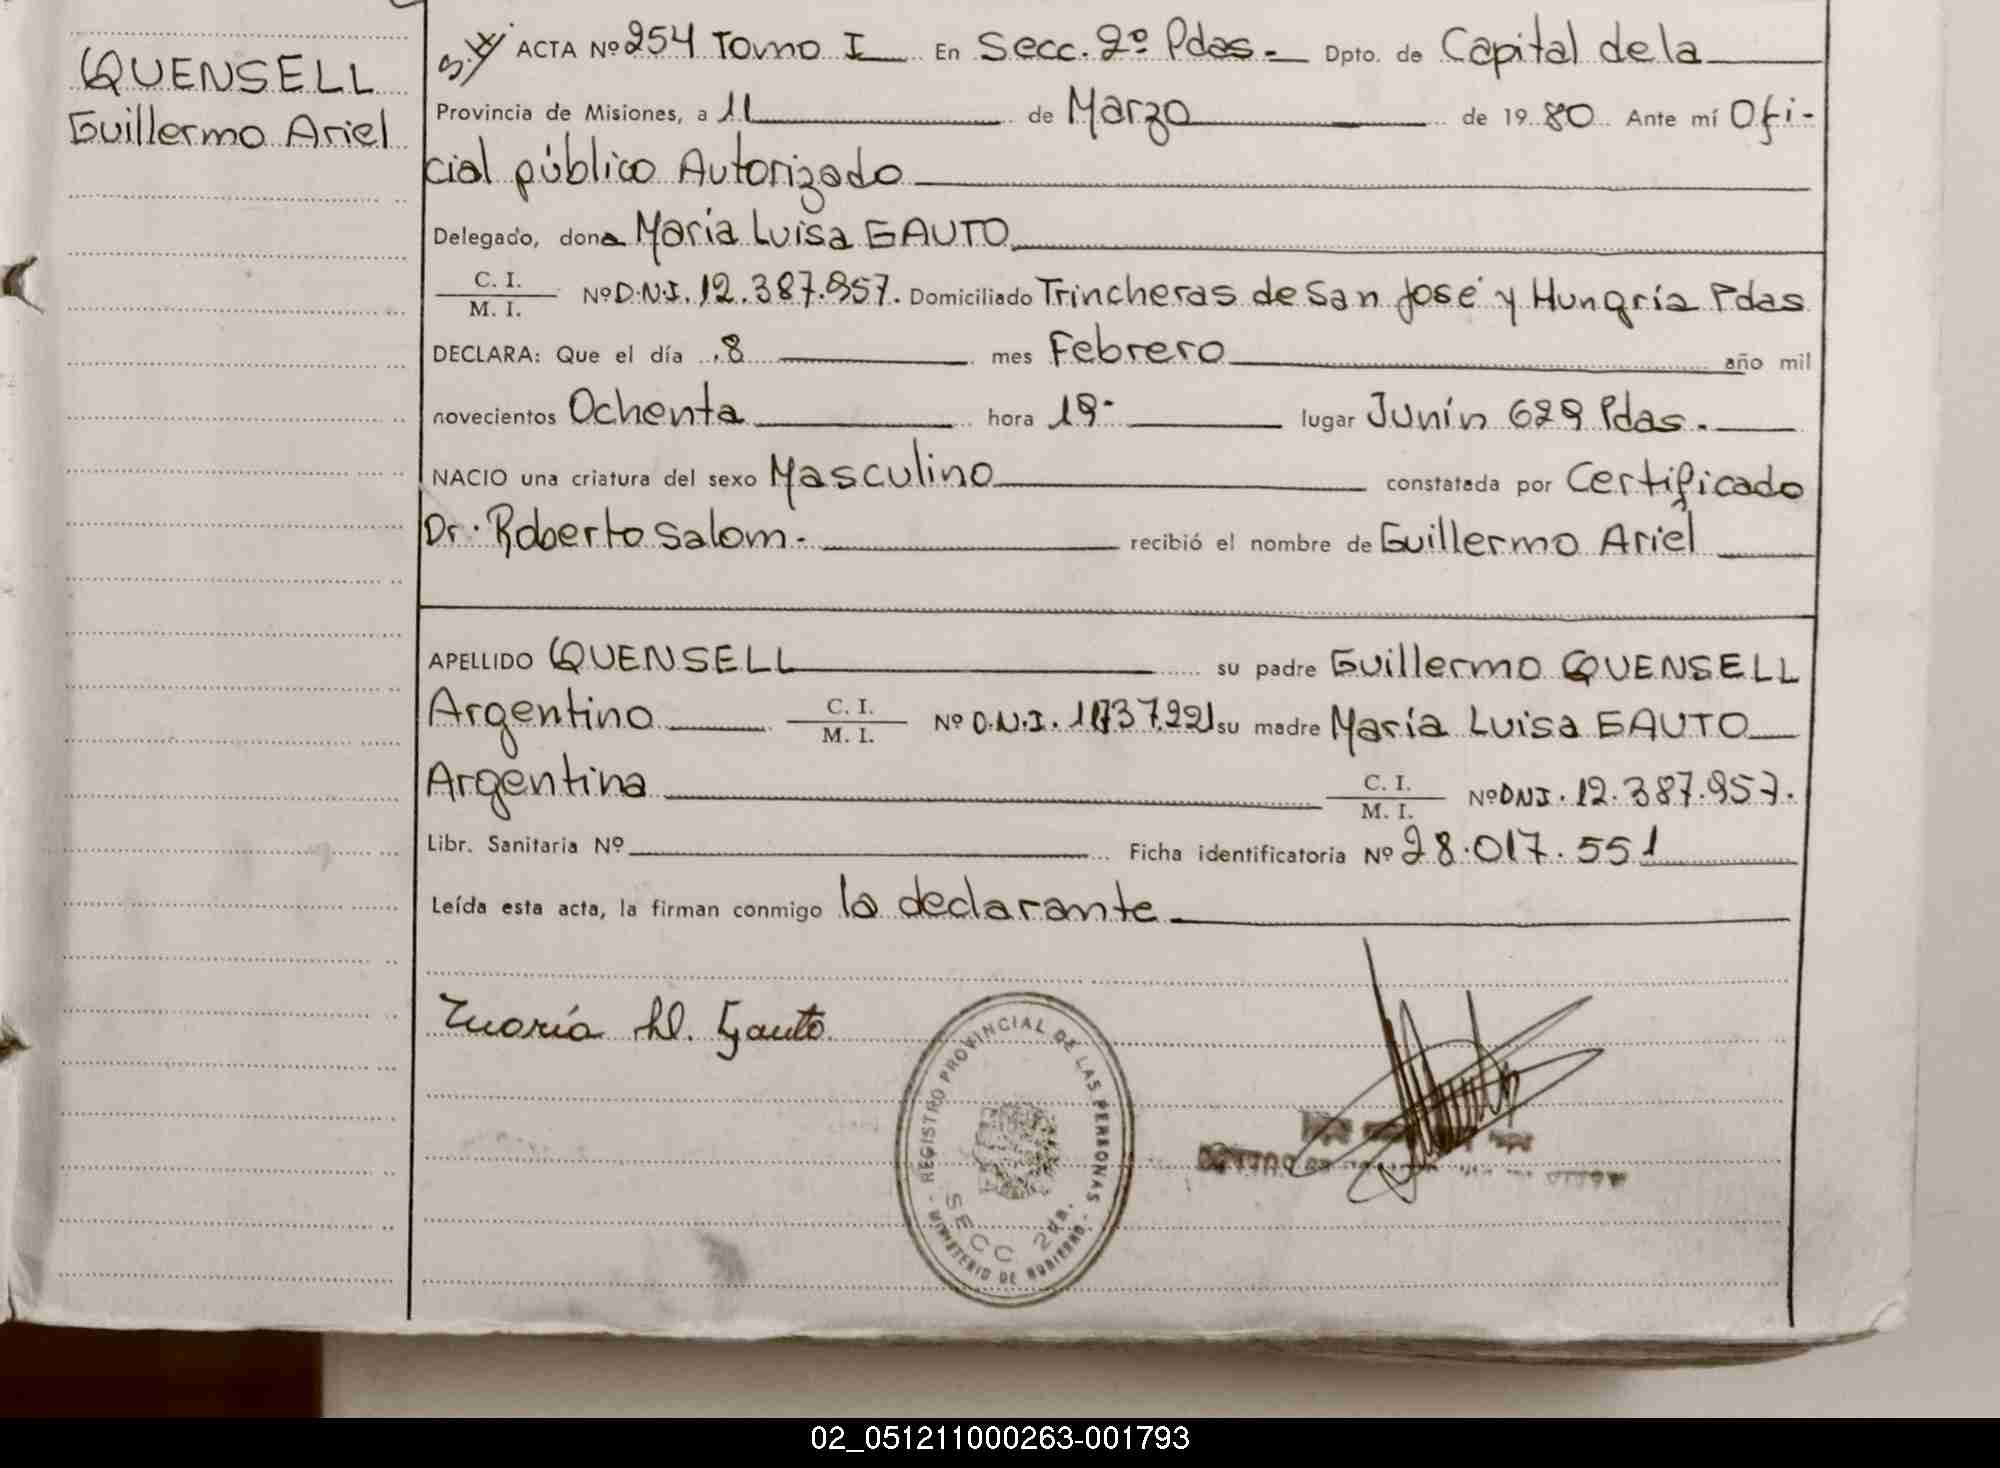 QUENSELL
Guillermo Ariel
ACTA Nº 254 Tomo I En Secc. 2º Pdas.- Dpto. de Capital de la
Provincia de Misiones, a 11 de Marzo de 1980 Ante mí Ofi-
cial público Autorizado
Delegado, dona María Luisa GAUTO
C. I.
M. I. Nº D.N.I. 12.387.957. Domiciliado Trincheras de San José y Hungría Pdas
DECLARA: Que el día 8 mes Febrero año mil
novecientos Ochenta hora 19- lugar Junín 629 Pdas.
NACIO una criatura del sexo Masculino constatada por Certificado
Dr. Roberto Salom.- recibió el nombre de Guillermo Ariel
APELLIDO QUENSELL su padre Guillermo QUENSELL
Argentino C. I.
M. I. Nº D.N.I. su madre María Luisa GAUTO
Argentina C. I.
M. I. Nº DNI. 12.387.957.
Libr. Sanitaria Nº Ficha identificatoria Nº 28.017.551
Leída esta acta, la firman conmigo la declarante
María L. Gauto
REGISTRO PROVINCIAL DE LAS PERSONAS
SECC 2da.
MINISTERIO DE GOBIERNO
02_051211000263-001793